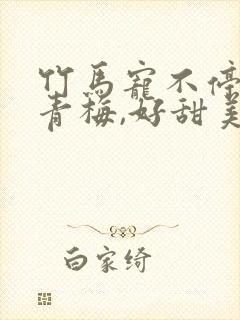 竹马宠不停
青梅,好甜美
白家绮